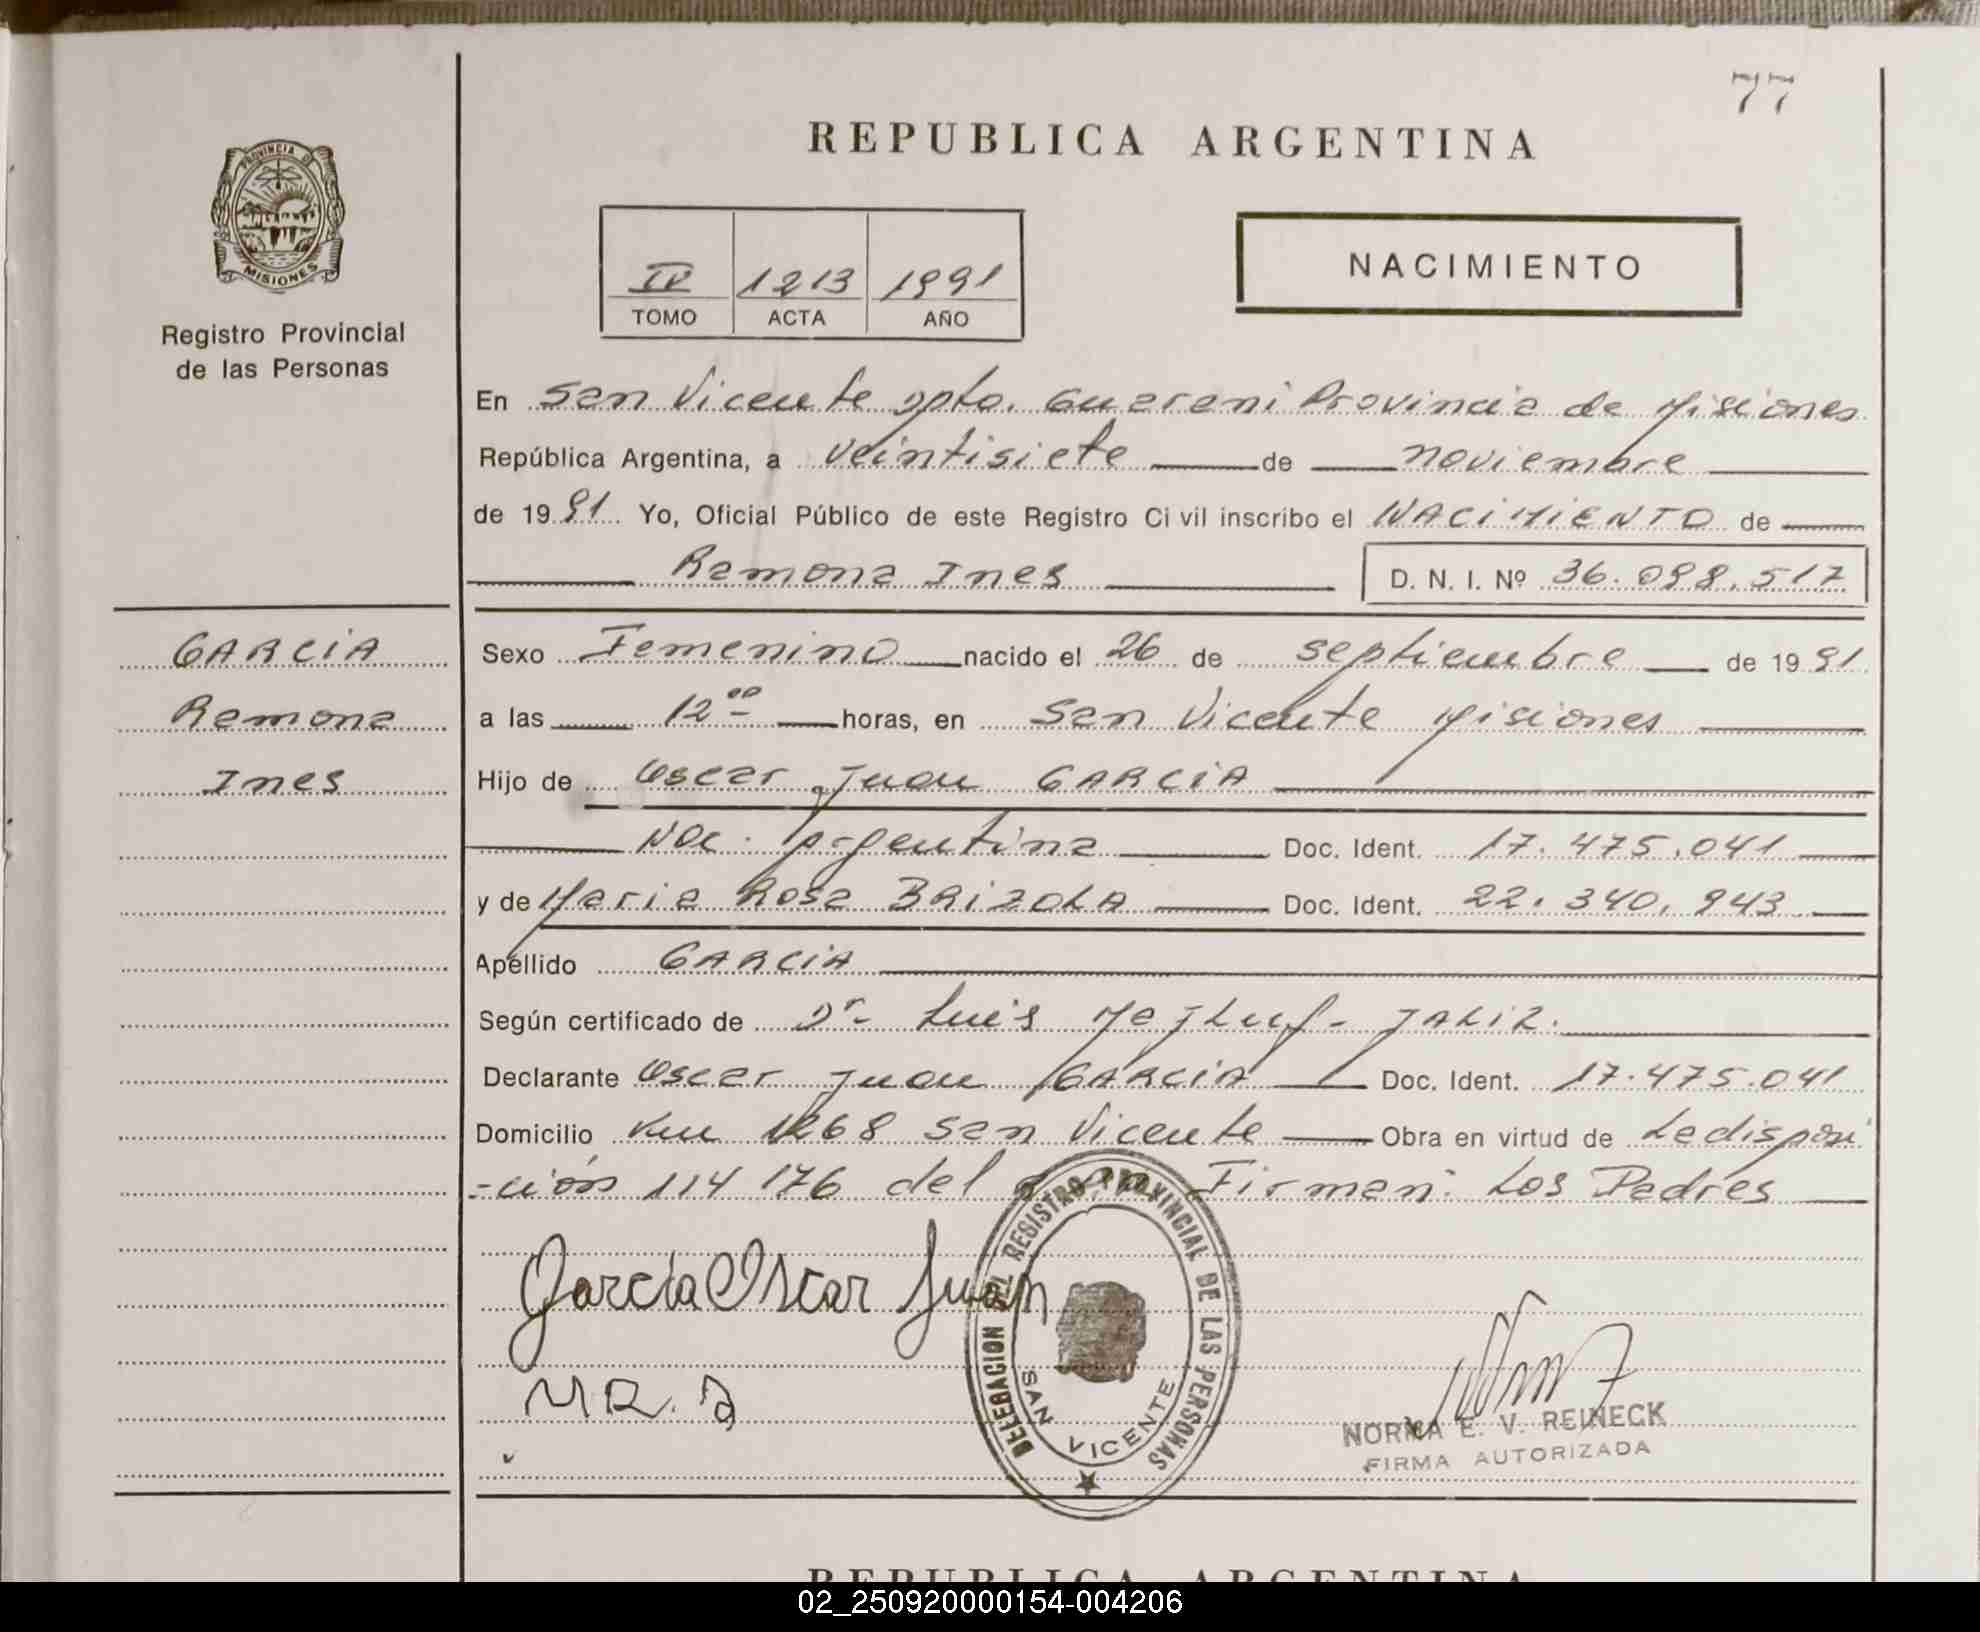 77
REPUBLICA ARGENTINA
PROVINCIA DE
MISIONES
Registro Provincial
de las Personas
IV 1213 1991
TOMO ACTA AÑO
NACIMIENTO
En San Vicente Dpto. Guarani Provincia de Misiones
República Argentina, a veintisiete de noviembre
de 1991 Yo, Oficial Público de este Registro Civil inscribo el NACIMIENTO de
Ramona Ines D. N. I. Nº 36.098.517
GARCIA
Ramona
Ines
Sexo Femenino nacido el 26 de septiembre de 1991
a las 12 00 horas, en San Vicente Misiones
Hijo de Oscar Juan GARCIA
Nac. Argentina Doc. Ident. 17.475.041
y de Maria Rosa BRIZOLA Doc. Ident. 22.340.943
Apellido GARCIA
Según certificado de Dr. Luis JALIL.
Declarante Oscar Juan GARCIA Doc. Ident. 17.475.041
Domicilio Km 1268 San Vicente Obra en virtud de La disposi
-ción 114/76 del Firman: Los Padres
Garcia Oscar Juan
M R. B
DELEGACION DEL REGISTRO PROVINCIAL DE LAS PERSONAS
SAN VICENTE
NORMA E. V. REINECK
FIRMA AUTORIZADA
REPUBLICA ARGENTINA
02_250920000154-004206